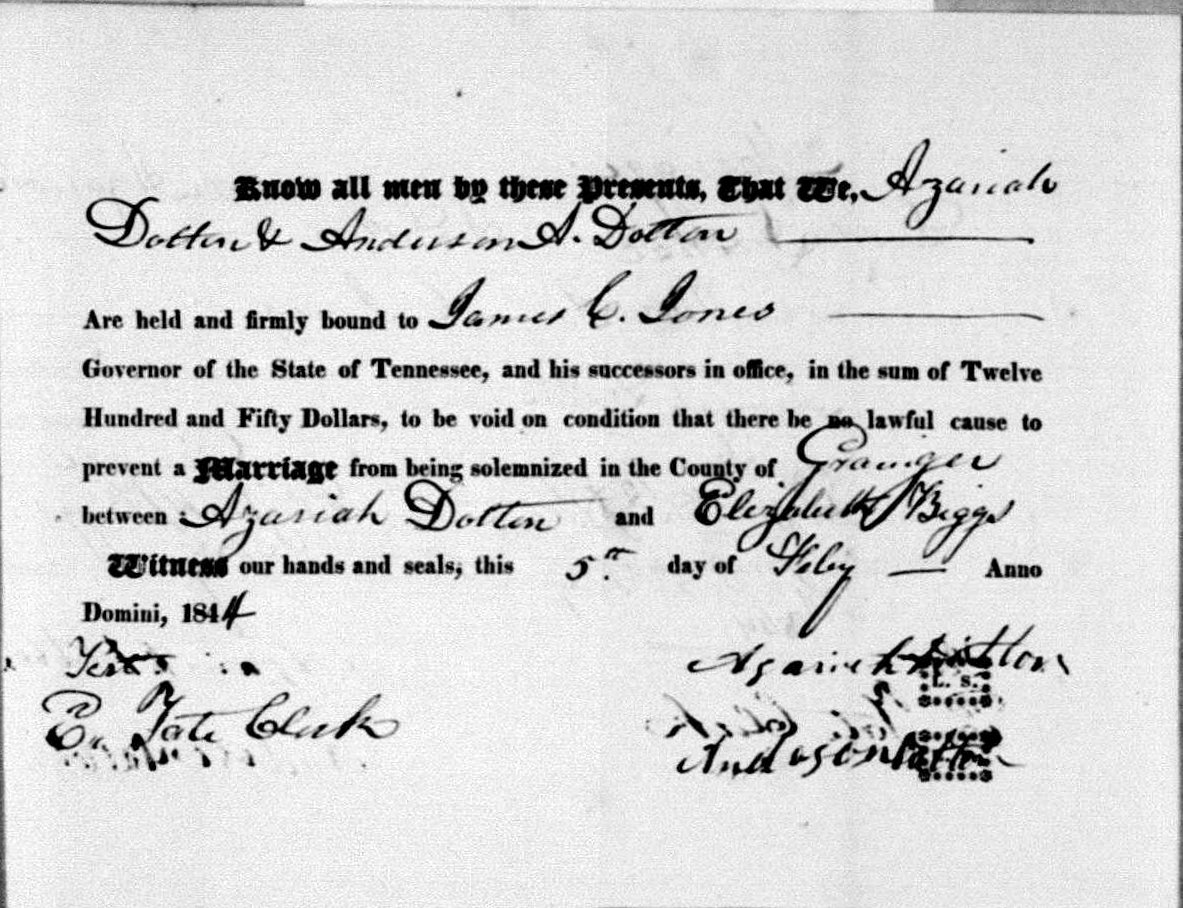 Know all men by these Presents, That We, Azariah
Dotten & Anderson A. Dotton
Are held and firmly bound to James C. Jones
Governor of the State of Tennessee, and his successors in office, in the sum of Twelve
Hundred and Fifty Dollars, to be void on condition that there be no lawful cause to
prevent a Marriage from being solemnized in the County of Grainger
between Azariah Dotten and Elizabeth Biggs
Witness our hands and seals, this 5th day of Feby Anno
Domini, 1844
Azariah
L. S.
E. Tate Clerk
Anderson